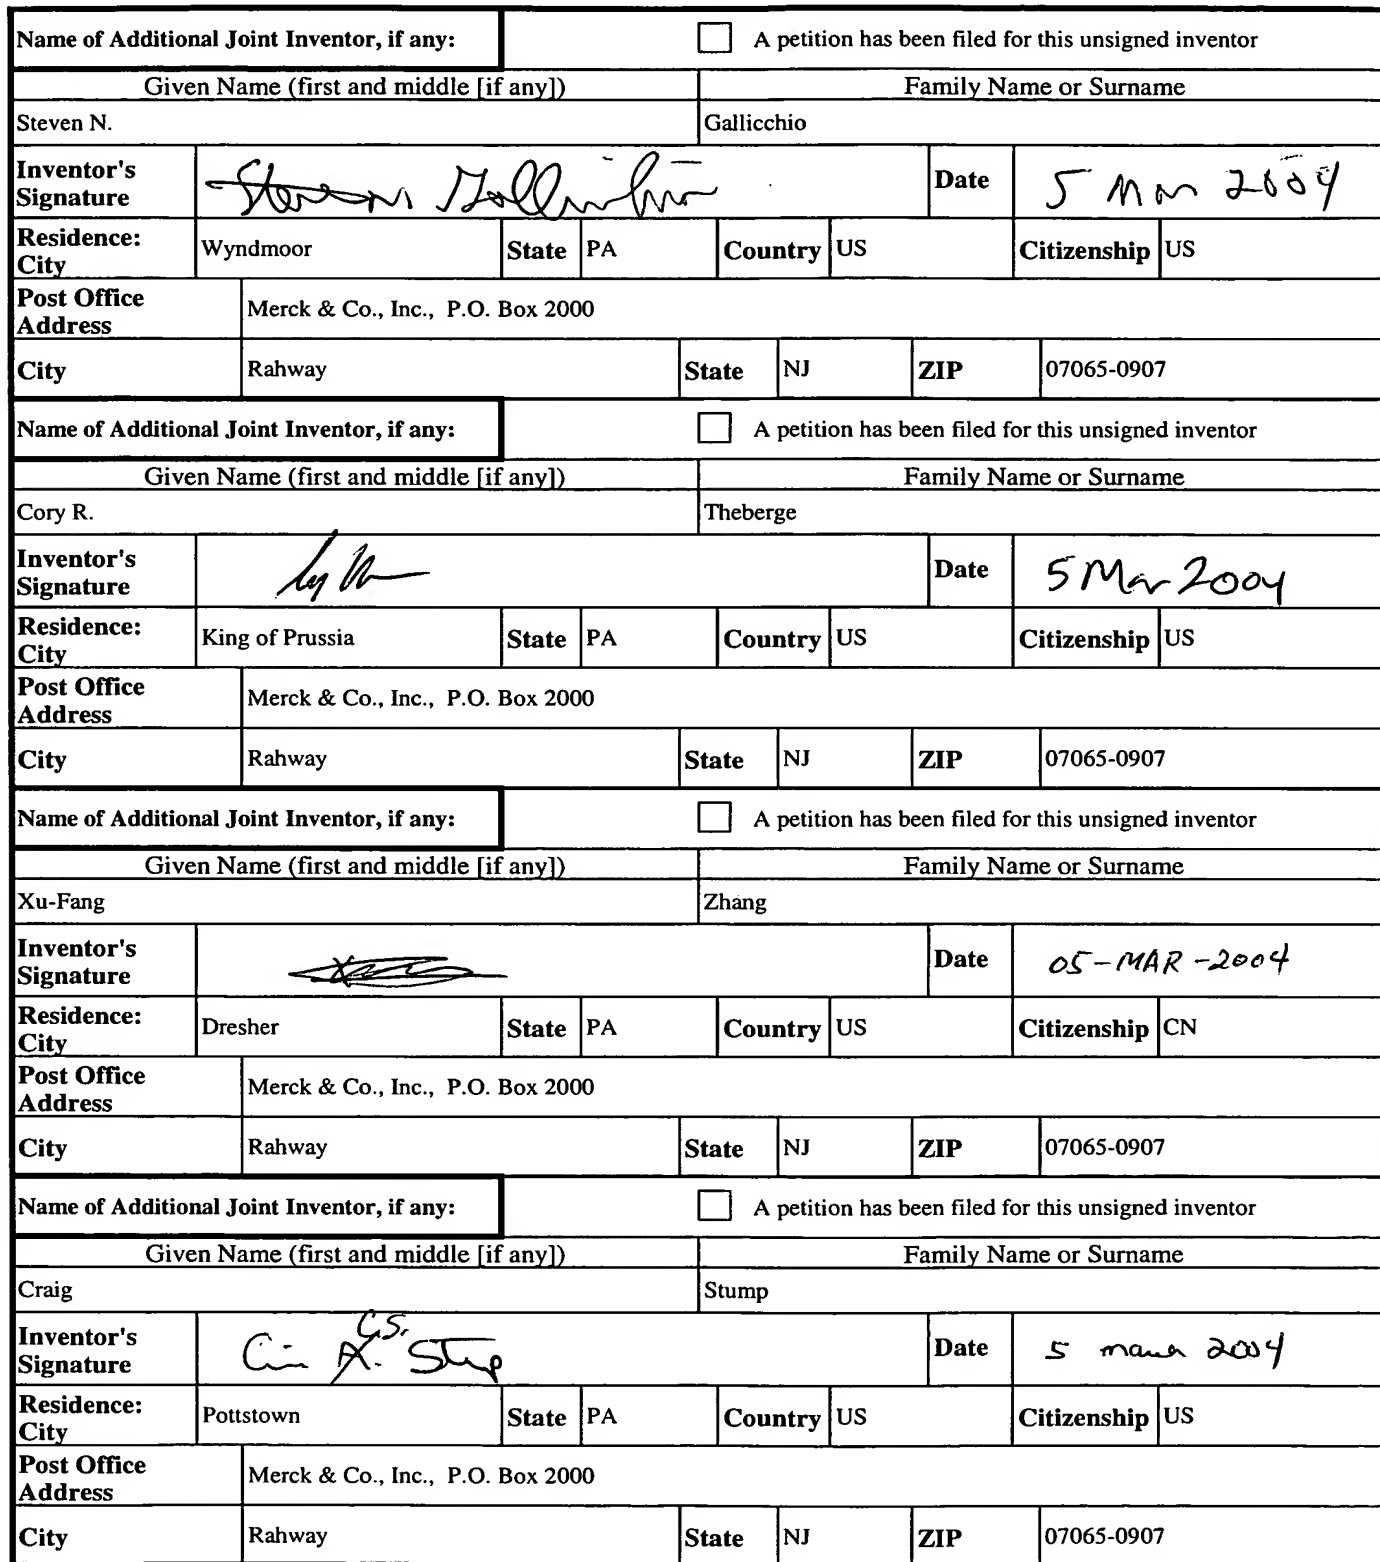 Name of Additional Joint Inventor, if any: A petition has been filed for this unsigned inventor
Given Name (first and middle [if any]) Family Name or Surname
Steven N. Gallicchio
Inventor's Signature Steven Gallicchio Date 5 Mar 2004
Residence: City Wyndmoor State PA Country US Citizenship US
Post Office Address Merck & Co., Inc., P.O. Box 2000
City Rahway State NJ ZIP 07065-0907
Name of Additional Joint Inventor, if any: A petition has been filed for this unsigned inventor
Given Name (first and middle [if any]) Family Name or Surname
Cory R. Theberge
Inventor's Signature Date 5 Mar 2004
Residence: City King of Prussia State PA Country US Citizenship US
Post Office Address Merck & Co., Inc., P.O. Box 2000
City Rahway State NJ ZIP 07065-0907
Name of Additional Joint Inventor, if any: A petition has been filed for this unsigned inventor
Given Name (first and middle [if any]) Family Name or Surname
Xu-Fang Zhang
Inventor's Signature Date 05-MAR-2004
Residence: City Dresher State PA Country US Citizenship CN
Post Office Address Merck & Co., Inc., P.O. Box 2000
City Rahway State NJ ZIP 07065-0907
Name of Additional Joint Inventor, if any: A petition has been filed for this unsigned inventor
Given Name (first and middle [if any]) Family Name or Surname
Craig Stump
C.S.
Inventor's Signature Stump Date 5 march 2004
Residence: City Pottstown State PA Country US Citizenship US
Post Office Address Merck & Co., Inc., P.O. Box 2000
City Rahway State NJ ZIP 07065-0907